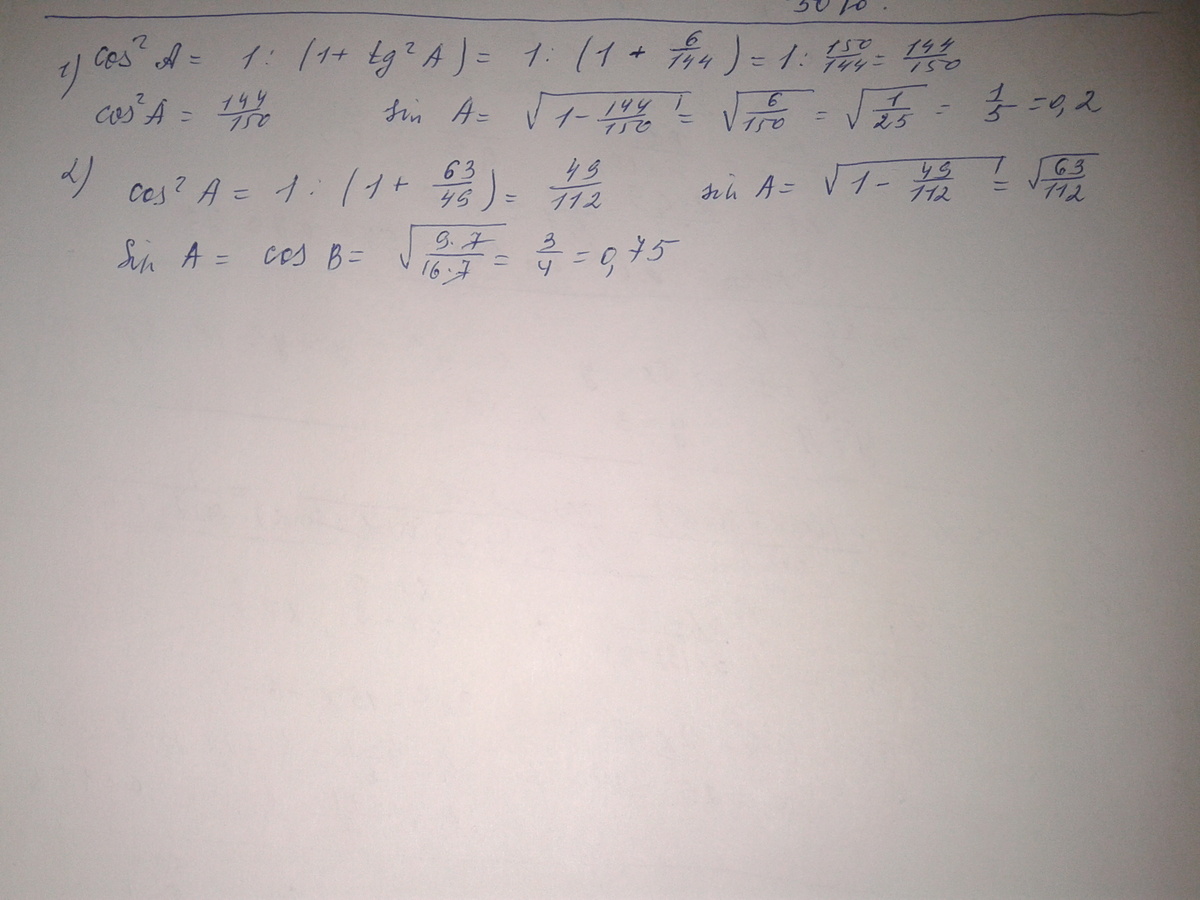 1) cos² A = 1 : (1 + tg² A) = 1 : (1 + 6/144) = 1 : 150/144 = 144/150
cos² A = 144/150 sin A = √(1 - 144/150) = √(6/150) = √(1/25) = 1/5 = 0,2
2) cos² A = 1 : (1 + 63/49) = 49/112 sin A = √(1 - 49/112) = √(63/112)
Sin A = cos B = √(9·7/16·7) = 3/4 = 0,75